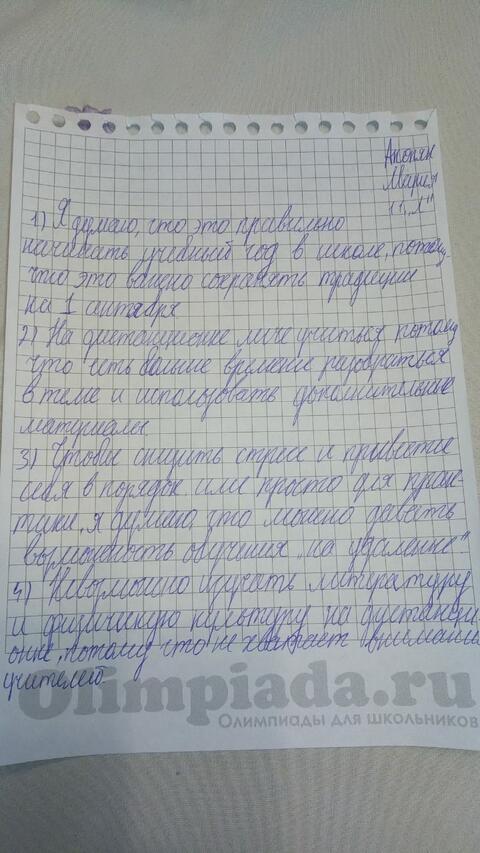 Акопян
Мария
11 "Л"
1) Я думаю, что это правильно
начинать учебный год в школе, потому,
что это важно сохранять традиции
на 1 сентября
2) На дистанционке легче учиться потому
что есть больше времени разобраться
в теме и использовать дополнительные
материалы.
3) Чтобы снизить стресс и привести
себя в порядок или просто для прак-
тики, я думаю, что можно давать
возможность обучения "на удаленке".
4) Невозможно изучать литературу
и физическую культуру на дистанци-
онке, потому что не хватает внимания
учителей.
Olimpiada.ru
Олимпиады для школьников